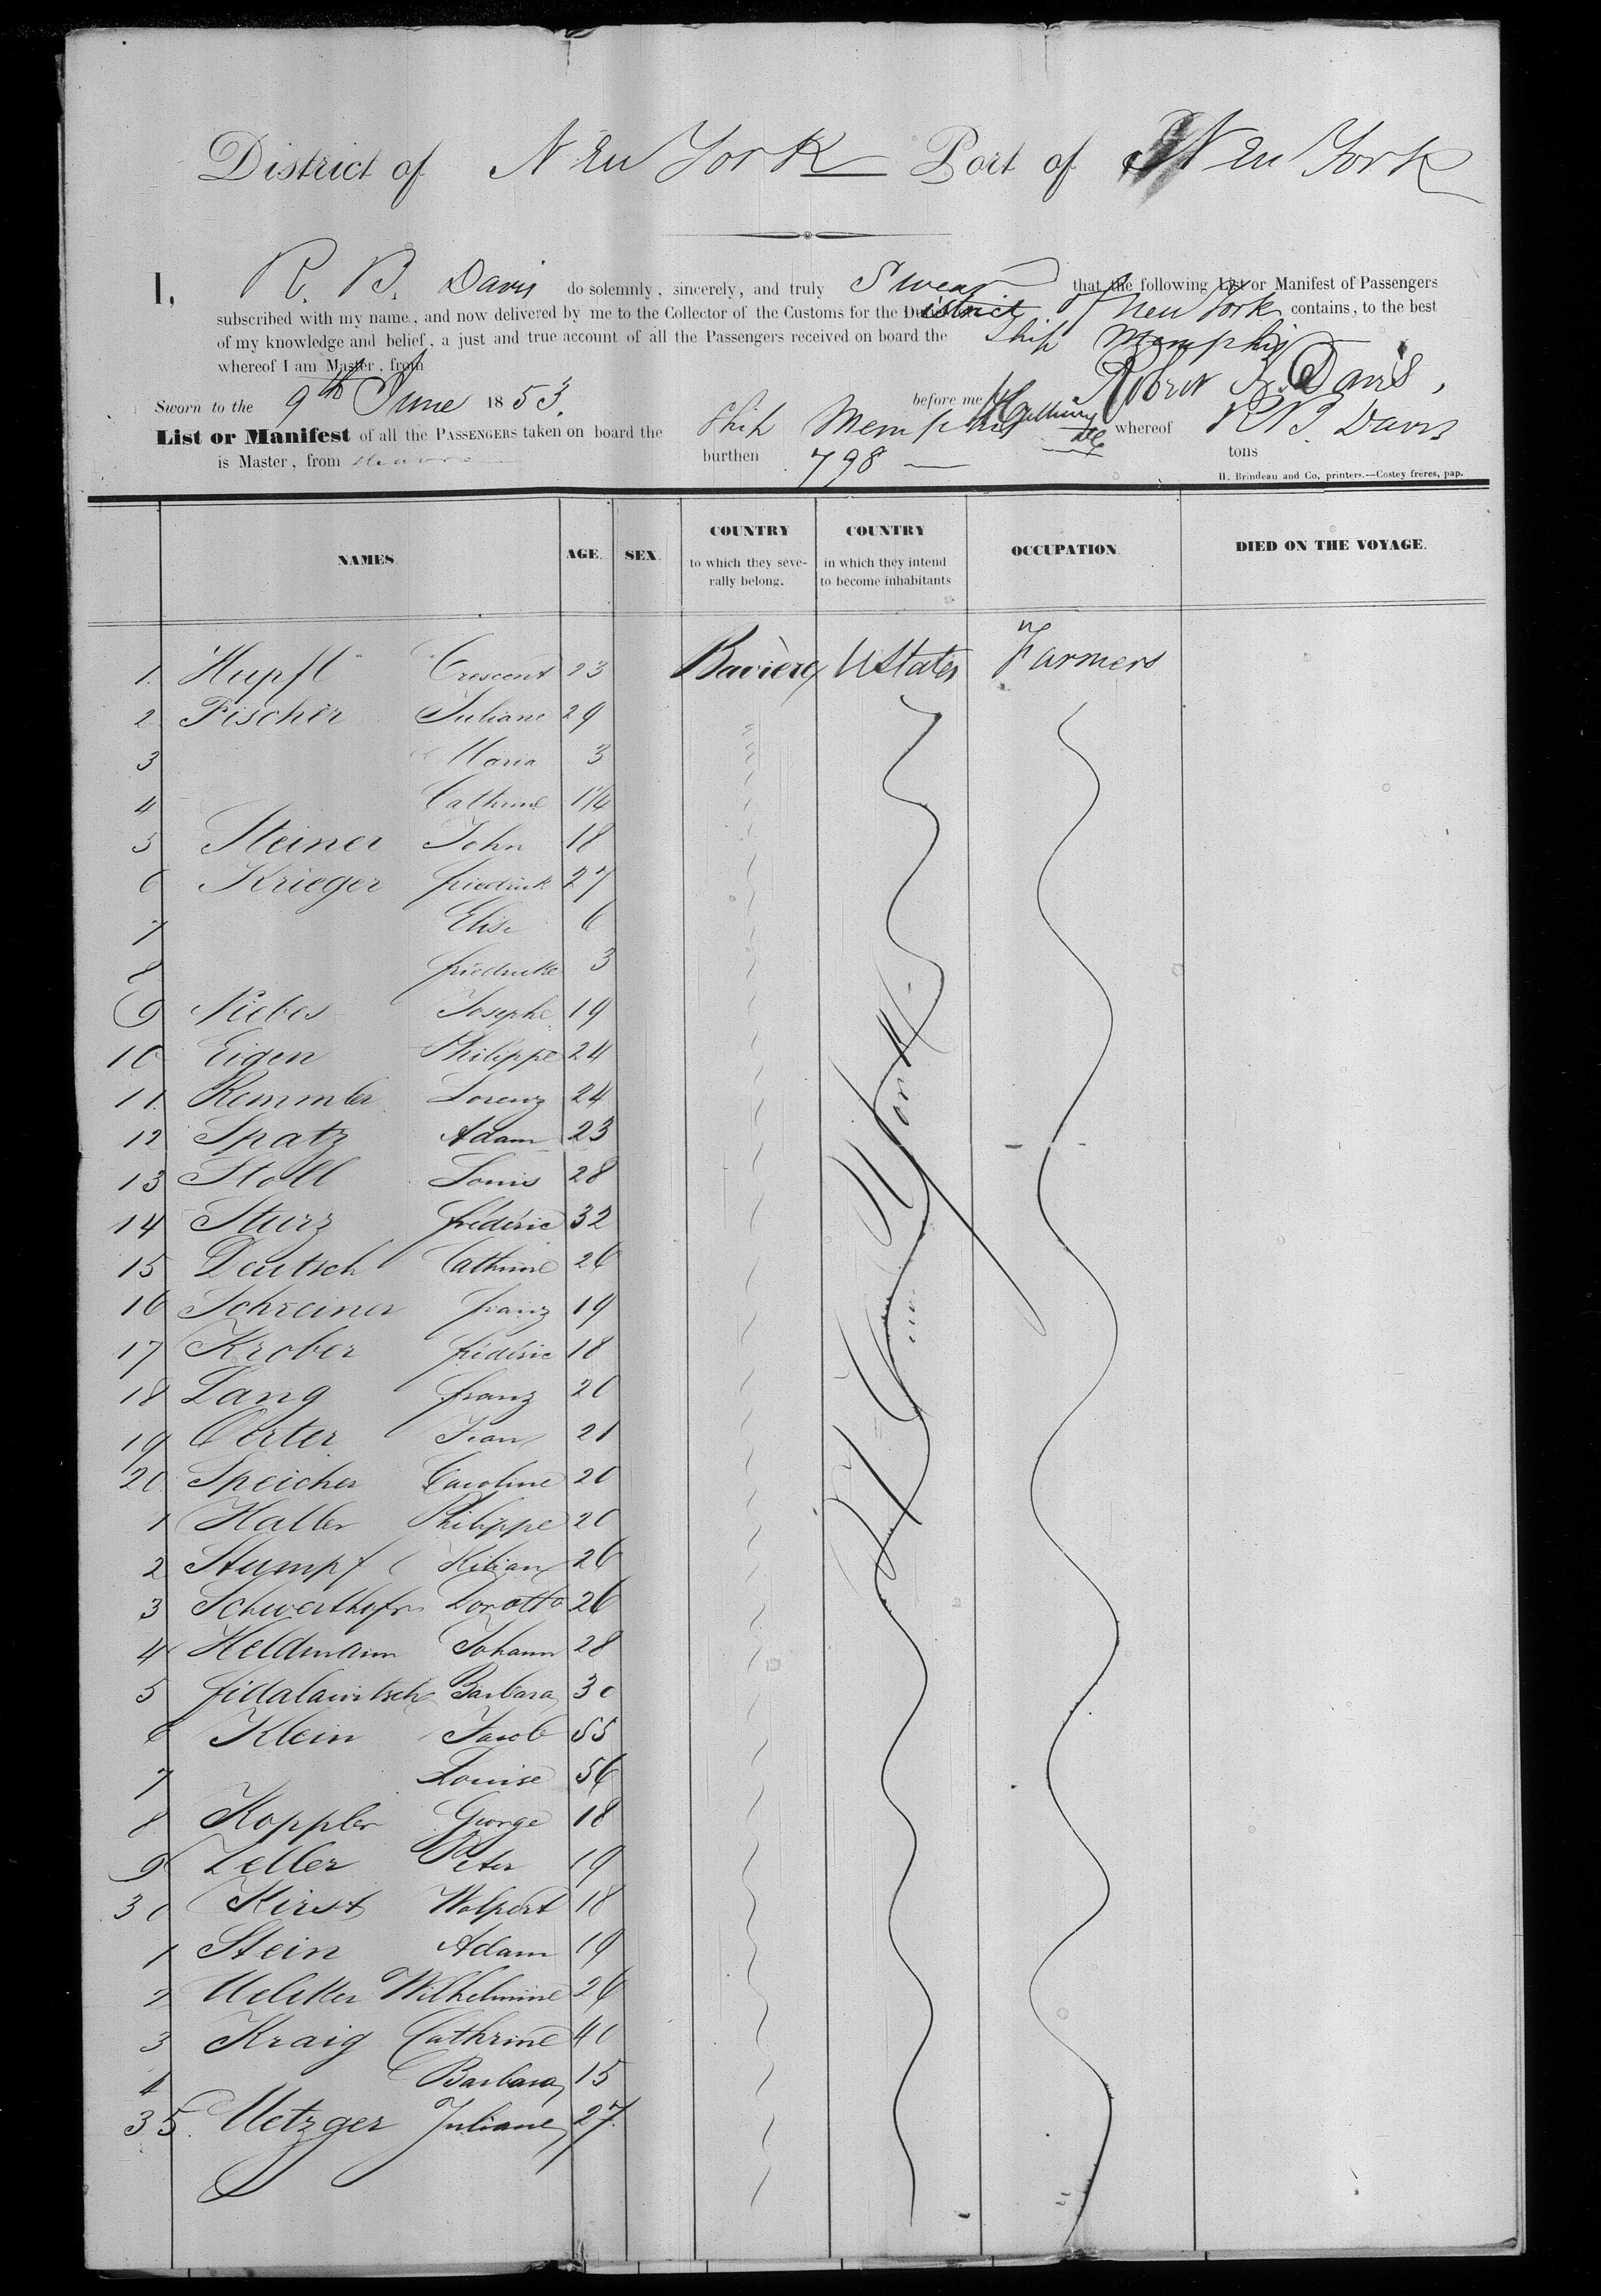 District of New York Port of New York
I, R. B. Davis do solemnly, sincerely, and truly Swear that the following List or Manifest of Passengers
subscribed with my name, and now delivered by me to the Collector of the Customs for the District of New York contains, to the best
of my knowledge and belief, a just and true account of all the Passengers received on board the Ship Memphis
whereof I am Master, from
Robert B. Davis,
Sworn to the 9th June 1853. before me
List or Manifest of all the PASSENGERS taken on board the Ship Memphis whereof R B. Davis
is Master, from Havre burthen 798 tons
H. Brindeau and Co, printers.—Costey frères, pap.
NAMES AGE. SEX. COUNTRY to which they severally belong. COUNTRY in which they intend to become inhabitants OCCUPATION. DIED ON THE VOYAGE.
1. Hupfl Crescent 23 Bavière UStates Farmers
2 Fischer Juliane 29
3 Maria 3
4 Cathrine 1¼
5 Steiner John 18
6 Krieger friedrick 27
7 Elise 6
8 friedricke 3
9 Niebes Josephe 19
10 Eigen Philippe 24
11. Remmler Lorenz 24
12 Spatz Adam 23
13 Stoll Louis 28
14 Sturz frédéric 32
15 Deutsch Cathrine 26
16 Schreiner franz 19
17 Krober frédéric 18
18 Lang franz 20
19 Oerter Jean 21
20 Speicher Caroline 20
1 Haller Philippe 20
2 Stumpf Kilian 26
3 26
4 Heldmann Johann 28
5 Barbara 30
6 Klein Jacob 55
7 Louise 56
8 Koppler George 18
9 Zeller Peter 19
30 Kirst Wolpert 18
1 Stein Adam 19
2 Ueliker Wilhelmine 26
3 Kraig Cathrine 40
4 Barbara 15
35. Metzger Juliane 27.
New York